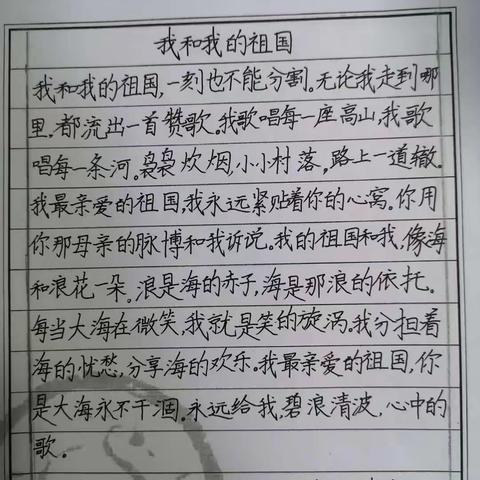 我和我的祖国
我和我的祖国,一刻也不能分割.无论我走到哪
里.都流出一首赞歌.我歌唱每一座高山,我歌
唱每一条河.袅袅炊烟,小小村落,路上一道辙.
我最亲爱的祖国,我永远紧贴着你的心窝.你用
你那母亲的脉博和我诉说.我的祖国和我,像海
和浪花一朵.浪是海的赤子,海是那浪的依托.
每当大海在微笑,我就是笑的旋涡.我分担着
海的忧愁,分享海的欢乐.我最亲爱的祖国,你
是大海永不干涸.永远给我,碧浪清波,心中的
歌.